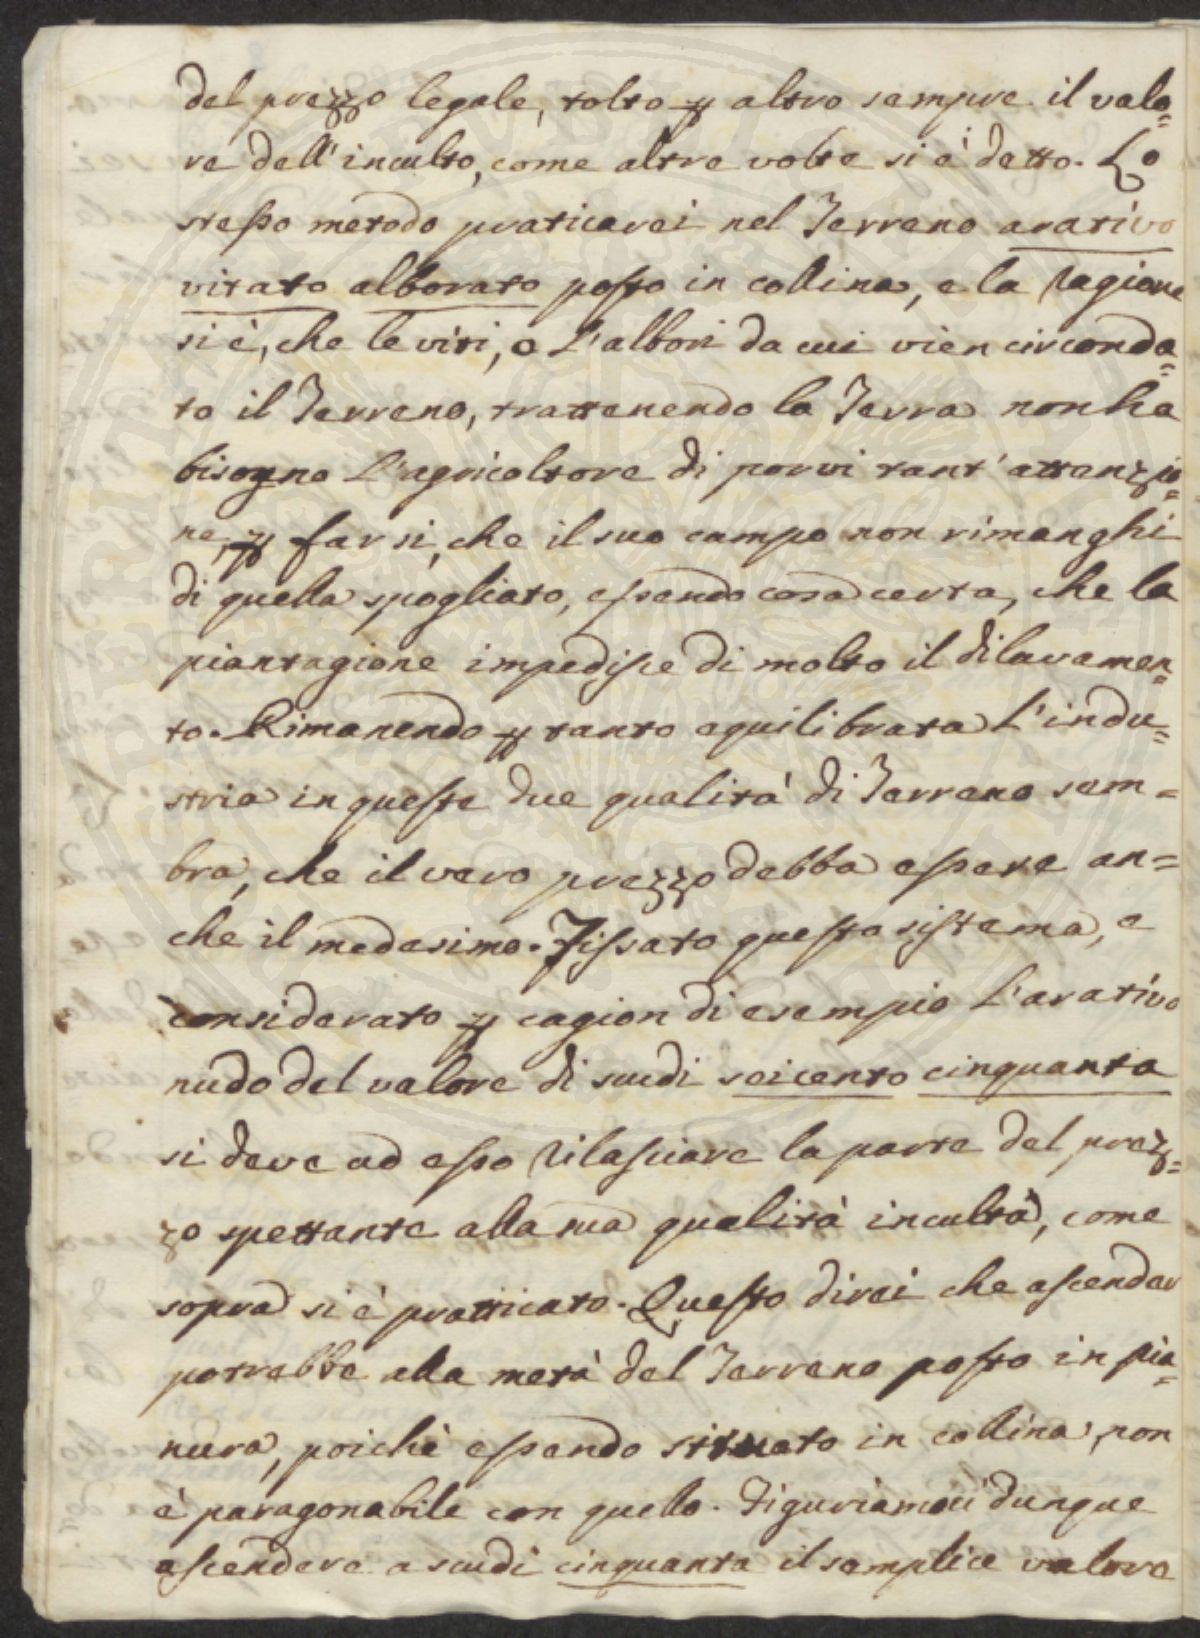 del prezzo legale, tolto p altro sempre il valo=
re dell'inculto, come altre volte si è detto. Lo
stesso metodo praticarei nel Terreno arativo
vitato alborato posto in collina, e la ragione
si è, che le viti, o l'albori da cui vien circonda=
to il Terreno, trattenendo la Terra non ha
bisogno l'agricoltore di porvi tant'attenzio=
ne, p far si, che il suo campo non rimanghi
di quella spogliato, essendo cosa certa, che la
piantagione impedisce di molto il dilavamen=
to. Rimanendo p tanto equilibrata l'indu=
stria in queste due qualità di Terreno sem=
bra, che il vero prezzo debba essere an=
che il medesimo. Fissato questo sistema, e
considerato p cagion di esempio l'arativo
nudo del valore di scudi seicento cinquanta
si deve ad esso rilasciare la parte del prez=
zo spettante alla sua qualità inculta, come
sopra si è pratticato. Questo direi che ascender
potrebbe alla metà del Terreno posto in pia=
nura, poichè essendo situato in collina, non
è paragonabile con quello. Figuriamoci dunque
ascendere a scudi cinquanta il semplice valore